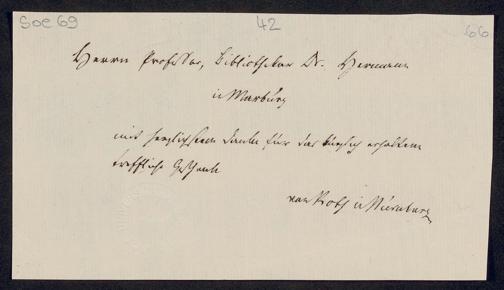 Soe 69 42 66
Herrn Professor, Bibliothekar Dr. Hermann
in Marburg
mit herzlichstem Danke für das kürzlich erhaltene
treffliche Geschenk
von Roth in Nürnberg